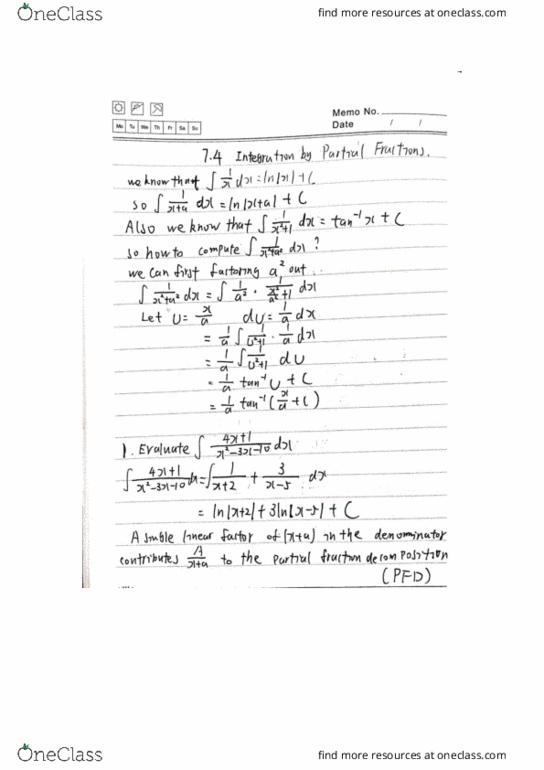 OneClass
find more resources at oneclass.com
Memo No.
Mo Tu We Th Fr Sa Su
Date / /
7.4 Integration by Partial Fractions.
we know that ∫ 1/x dx = ln|x| + C
so ∫ 1/(x+a) dx = ln|x+a| + C
Also we know that ∫ 1/(x²+1) dx = tan⁻¹ x + C
so how to compute ∫ 1/(x²+a²) dx ?
we can first factoring a² out
∫ 1/(x²+a²) dx = ∫ 1/a² · 1/(x²/a²+1) dx
Let U = x/a dU = 1/a dx
= 1/a ∫ 1/(U²+1) · 1/a dx
= 1/a ∫ 1/(U²+1) dU
= 1/a tan⁻¹ U + C
= 1/a tan⁻¹ (x/a + C)
1. Evaluate ∫ (4x+1)/(x²-3x-10) dx
∫ (4x+1)/(x²-3x-10) dx = ∫ 1/(x+2) + 3/(x-5) dx
= ln|x+2| + 3ln|x-5| + C
A simple linear factor of (x+a) in the denominator
contributes A/(x+a) to the partial fraction decomposition
(PFD)
OneClass
find more resources at oneclass.com